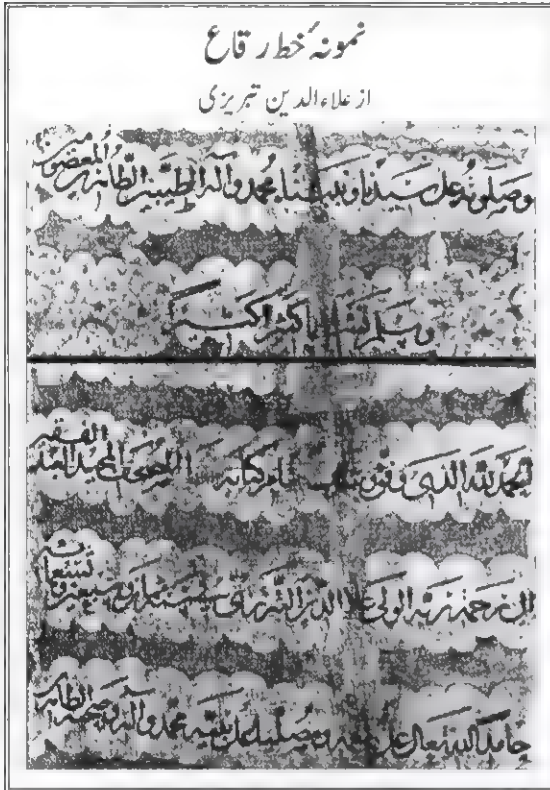 نمونہ خط رقاع
از علاء الدین تبریزی
وصلوته علی سیدنا ونبینا محمد وآله الطیبین الطاهرین المعصومین
وسلم تسلیما کثیرا کثیرا
الحمد لله الذی وفق کتابه الفقیر
الی رحمة ربه الولی علاء الدین التبریزی
حامدا لله تعالی علی نعمه ومصلیا علی نبیه محمد وآله وصحبه الطاهرین